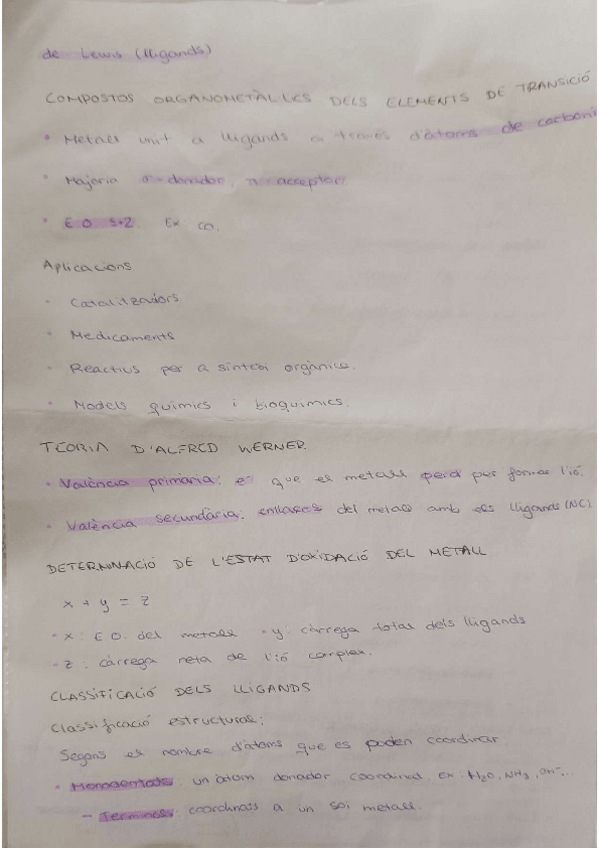 de Lewis (lligands)
COMPOSTOS ORGANOMETÀL·LICS DELS ELEMENTS DE TRANSICIÓ
• Metall unit a lligands a través d'àtoms de carboni
• Majoria σ-donador, π-acceptor
• E.O. Ex CO.
Aplicacions
• Catalitzadors
• Medicaments
• Reactius per a síntesi orgànica.
• Models químics i bioquímics.
TEORIA D'ALFRED WERNER.
• València primària: e⁻ que el metall perd per formar l'ió.
• València secundària: enllaços del metall amb els lligands (NC)
DETERMINACIÓ DE L'ESTAT D'OXIDACIÓ DEL METALL
x + y = z
- x: E.O. del metall - y: càrrega total dels lligands
- z: càrrega neta de l'ió complex.
CLASSIFICACIÓ DELS LLIGANDS
Classificació estructural:
Segons el nombre d'àtoms que es poden coordinar.
• Monodentats: un àtom donador coordinat. ex: H₂O, NH₃, OH⁻...
- Terminals: coordinats a un sol metall.